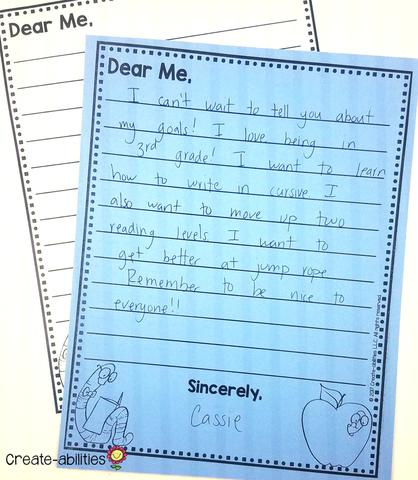 Dear Me,
Dear Me,
I can't wait to tell you about
my goals! I love being in
3rd grade! I want to learn
how to write in cursive I
also want to move up two
reading levels I want to
get better at jump rope
Remember to be nice to
everyone!!
Sincerely,
Cassie
© 2017 Create-abilities LLC. All rights reserved.
Create-abilities